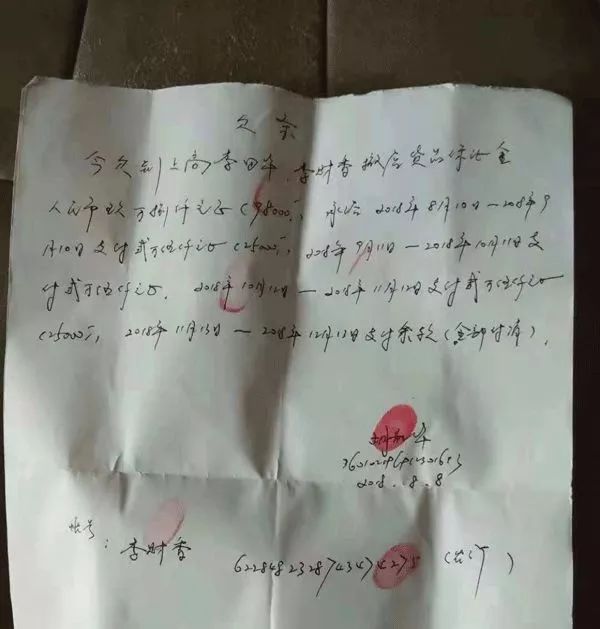 欠条
今欠到上高李田华、李财香搬店货品保证金
人民币玖万捌仟元正(98000元),承诺2018年8月10日—2018年9
月10日支付贰万伍仟元正(25000元),2018年9月11日—2018年10月11日支
付贰万伍仟元正.2018年10月12日—2018年11月12日支付贰万伍仟元正
(25000元),2018年11月13日—2018年12月13日支付余款(全部付清).
2018.8.8
帐号:李财香 6228482328743474275(农行)